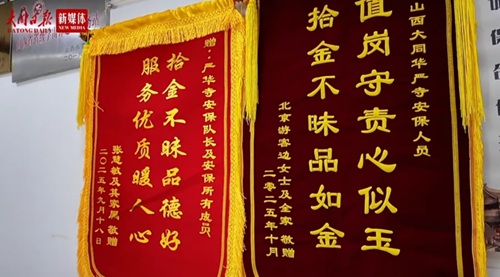 大同日报
DATONG DAILY
新媒体
NEW MEDIA
赠：华严寺安保队长及安保所有成员
拾金不昧品德好
服务优质暖人心
张慧敏及其家属 敬赠
二〇二五年九月十八日
山西大同华严寺安保人员
值岗守责心似玉
拾金不昧品如金
北京游客边女士及全家 敬赠
二零二五年十月